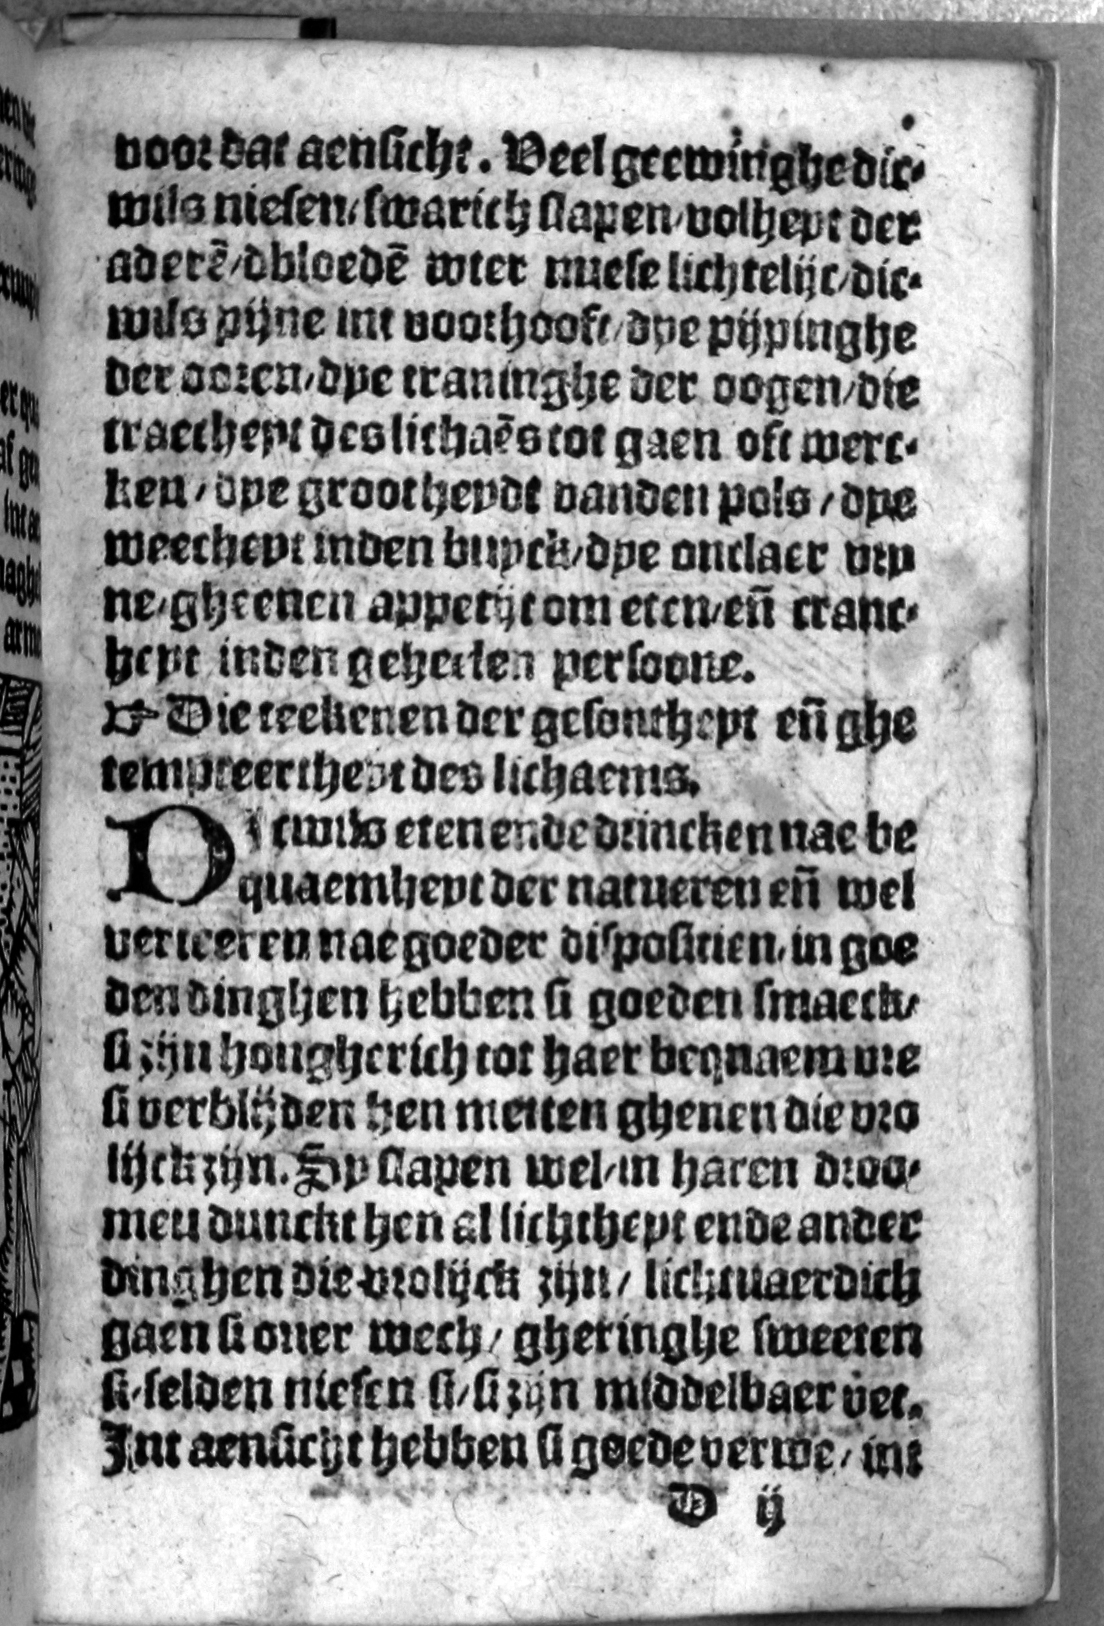 voor dat aensicht. Veel geewinghe dic-
wils niesen/swarich slapen/volheyt der
aderē/dbloedē wter nuese lichtelijc/dic-
wils pijne int voorhooft/dye pijpinghe
der ooren/dye traninghe der oogen/die
traecheyt des lichaēs tot gaen oft werc-
ken/dye grootheydt vanden pols/dye
weecheyt inden buyck/dye onclaer vry
ne/gheenen appetijt om eten/en̄ cranc-
heyt inden geheelen persoone.
☞ Die teekenen der gesontheyt en̄ ghe
tempreertheyt des lichaems.
DIcwils eten ende drincken nae be
quaemheyt der natueren en̄ wel
verteeren nae goeder dispositien/in goe
den dinghen hebben si goeden smaeck/
si zijn hongherich tot haer beqnaem vre
si verblijden hen metten ghenen die vro
lijck zijn. Sy slapen wel/in haren droo-
men dunckt hen al lichtheyt ende ander
dinghen die vrolijck zijn/ lichtuaerdich
gaen si ouer wech/ gheringhe sweeten
si/selden niesen si/si zijn middelbaer vet.
Int aensicht hebben si goede verwe/int
D ij